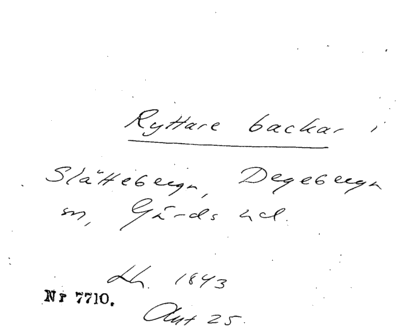 Ryttare backar i
Slättebergn, Degebergn
sn, Gärds hd.
Lh. 1843
Nr 7710.
Ant 25.